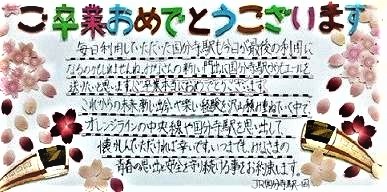 ご卒業おめでとうございます
毎日利用していただいた国分寺駅も今日が最後の利用に
なるのかもしれませんね。みなさんの新しい門出に国分寺駅からもエールを
送りたいと思います。ご卒業本当におめでとうございます。
これからの未来、新しい出会いや楽しい経験を沢山積み重ねていく中で
オレンジラインの中央線や国分寺駅を思い出して
懐かしんでいただければ幸いです。いつまでも、みなさまの
青春の思い出と安全を守り続ける事をお約束します。
JR国分寺駅一同